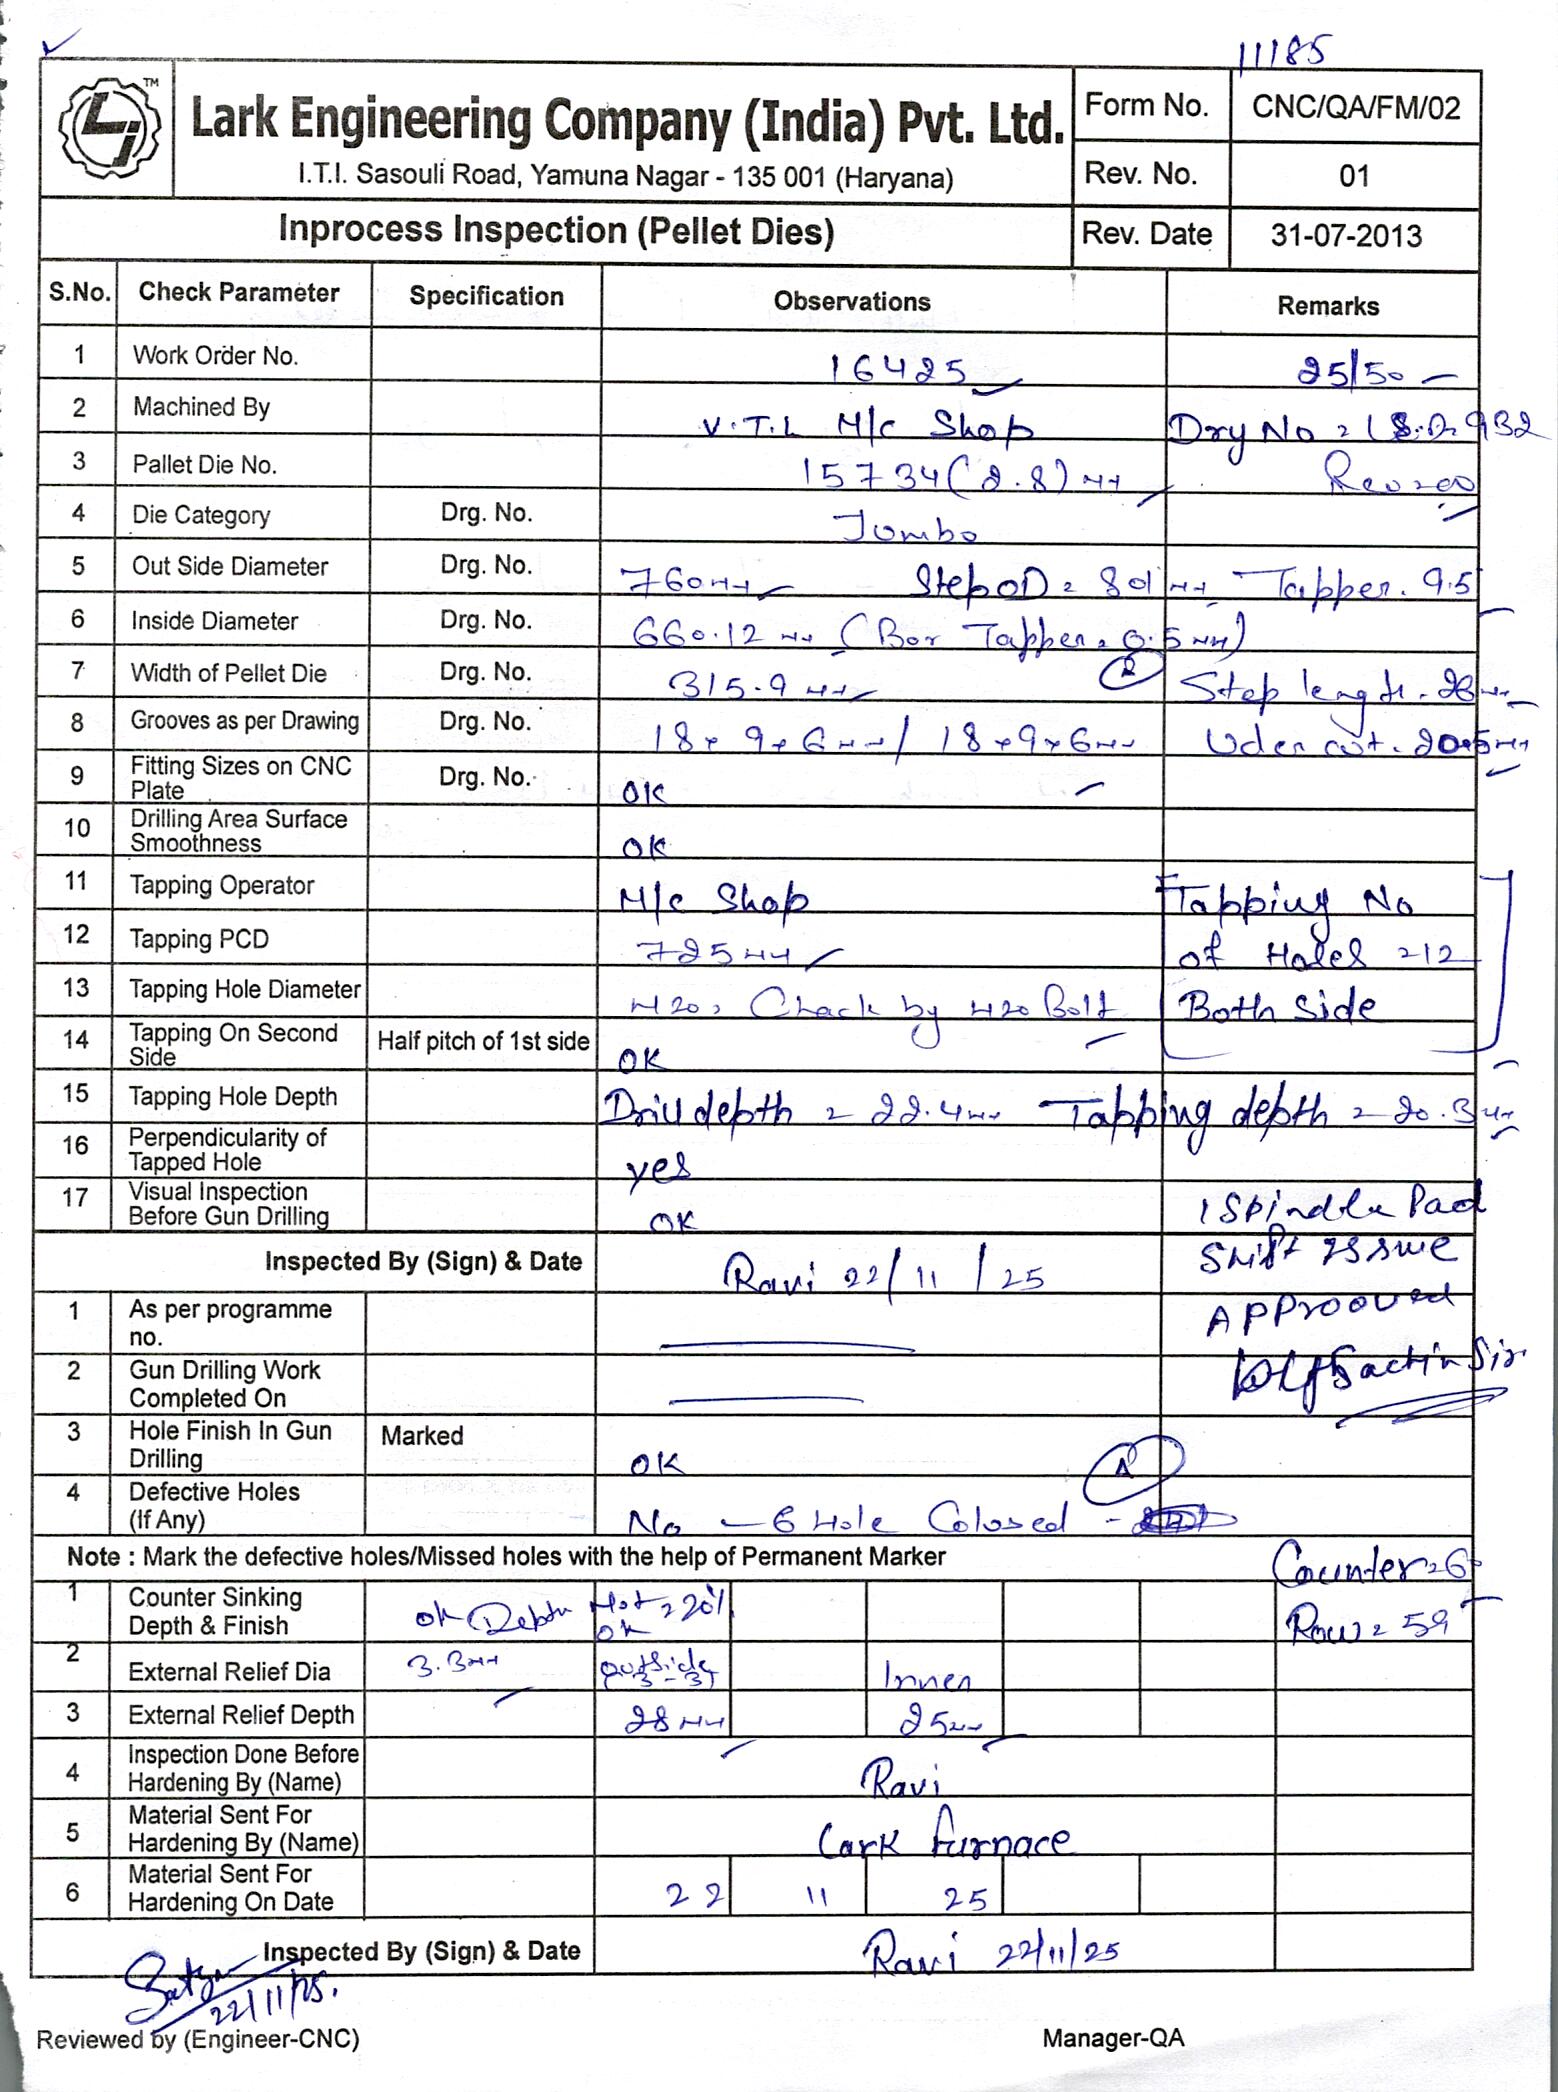 11185
Lark Engineering Company (India) Pvt. Ltd.
I.T.I. Sasouli Road, Yamuna Nagar - 135 001 (Haryana)
Form No. CNC/QA/FM/02
Rev. No. 01
Inprocess Inspection (Pellet Dies) Rev. Date 31-07-2013
S.No. Check Parameter Specification Observations Remarks
1 Work Order No. 16425 25/50
2 Machined By V.T.L M/c Shop Dry No =
3 Pallet Die No. 15734 (2.8) mm Rev=00
4 Die Category Drg. No. Jumbo
5 Out Side Diameter Drg. No. 760mm Step OD = 801 mm Tapper. 9.5
6 Inside Diameter Drg. No. 660.12 mm (Bor Tapper = 0.5 mm)
7 Width of Pellet Die Drg. No. 315.9 mm Step length. 26mm
8 Grooves as per Drawing Drg. No. 18x9x6mm / 18x9x6mm Uder cut. 20.5mm
9 Fitting Sizes on CNC Plate Drg. No. OK
10 Drilling Area Surface Smoothness OK
11 Tapping Operator M/c Shop Tapping No
12 Tapping PCD 725mm of Holes =12
13 Tapping Hole Diameter M20, Chack by M20 Bolt Both Side
14 Tapping On Second Side Half pitch of 1st side OK
15 Tapping Hole Depth Drill depth = 22.4mm Tapping depth = 20.3mm
16 Perpendicularity of Tapped Hole yes
17 Visual Inspection Before Gun Drilling OK 1 Spindle Pad
Shift Issue
Inspected By (Sign) & Date Ravi 22/11/25
1 As per programme no. APProoved
2 Gun Drilling Work Completed On Sachin Sir
3 Hole Finish In Gun Drilling Marked OK
4 Defective Holes (If Any) No - 6 Hole Colosed
Note : Mark the defective holes/Missed holes with the help of Permanent Marker Counter=60
1 Counter Sinking Depth & Finish ok Depth OK Row = 59
2 External Relief Dia 3.3mm outside Inner
3 External Relief Depth 28mm 25mm
4 Inspection Done Before Hardening By (Name) Ravi
5 Material Sent For Hardening By (Name) Lark furnace
6 Material Sent For Hardening On Date 22 11 25
Inspected By (Sign) & Date Ravi 22/11/25
22/11/25.
Reviewed by (Engineer-CNC) Manager-QA